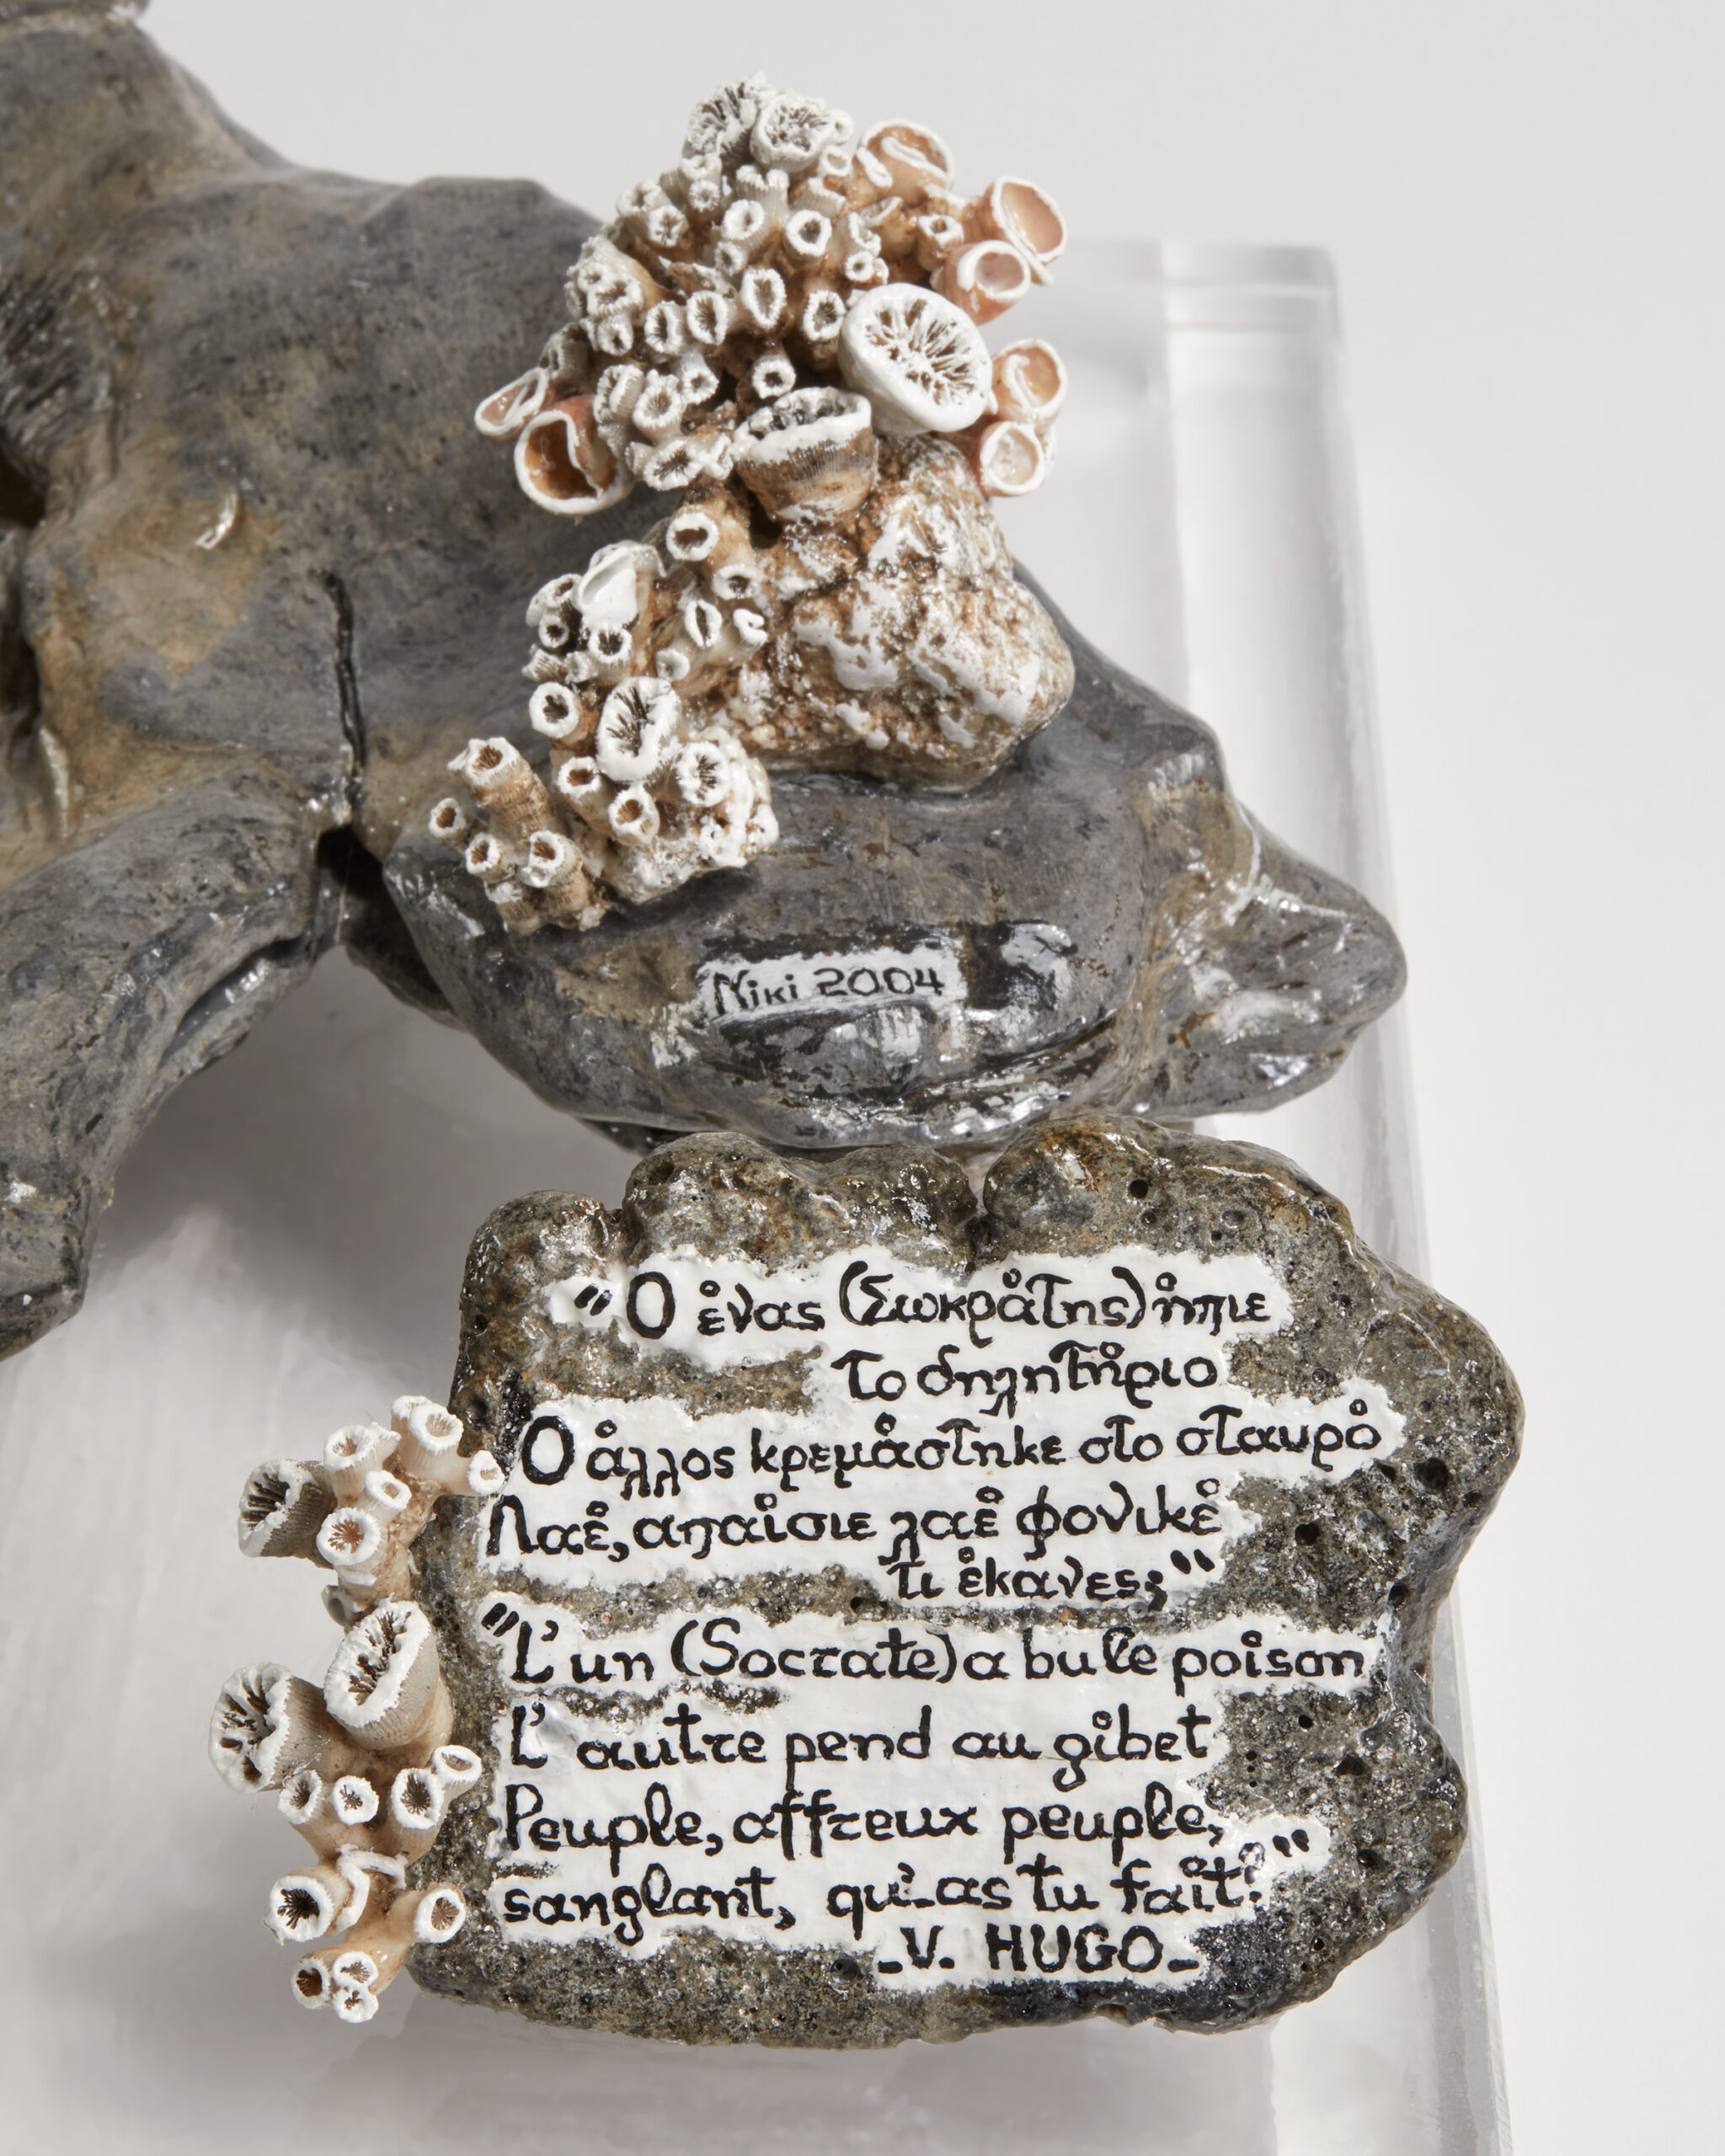 Niki 2004
"Ο ένας (Σωκράτης) ήπιε
το δηλητήριο
Ο άλλος κρεμάστηκε στο σταυρό
Λαέ, απαίσιε λαέ φονικέ
τι έκανες;"
"L'un (Socrate) a bu le poison
L'autre pend au gibet
Peuple, affreux peuple,
sanglant, qu'as tu fait?"
-V. HUGO-